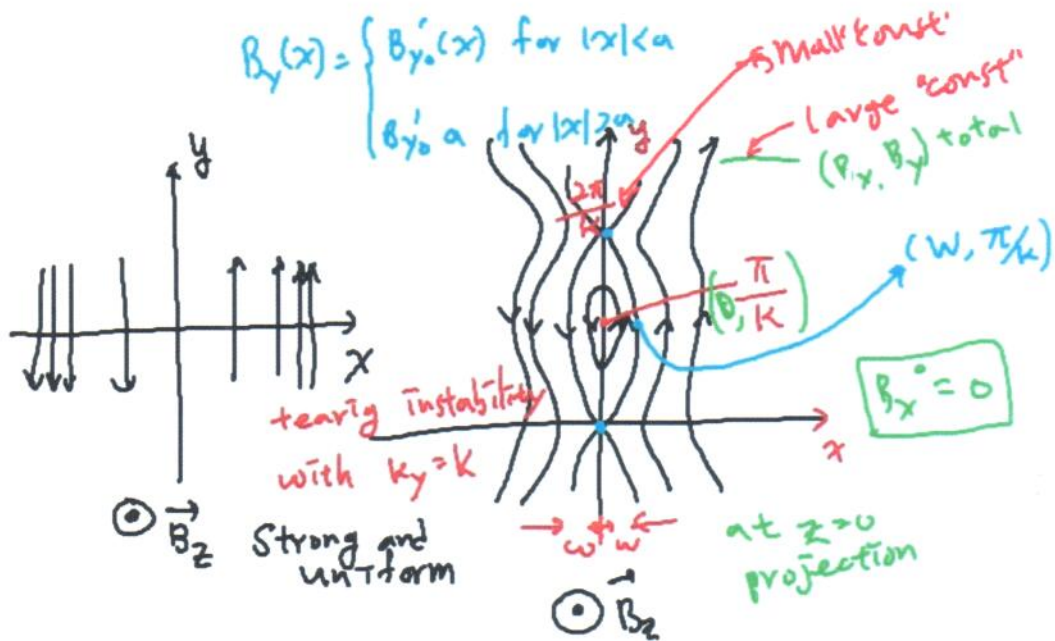 B_y(x) = { B'_{y_0}(x) for |x|<a
B'_{y_0} a for |x|≥a
small "const"
large "const"
(B_x, B_y) total
y
y
2π/k
(W, π/k)
(0, π/k)
x
B_x^0 = 0
tearig instability
with k_y = k
x
B_z
Strong and
uniform
w w
at z=0
projection
B_z